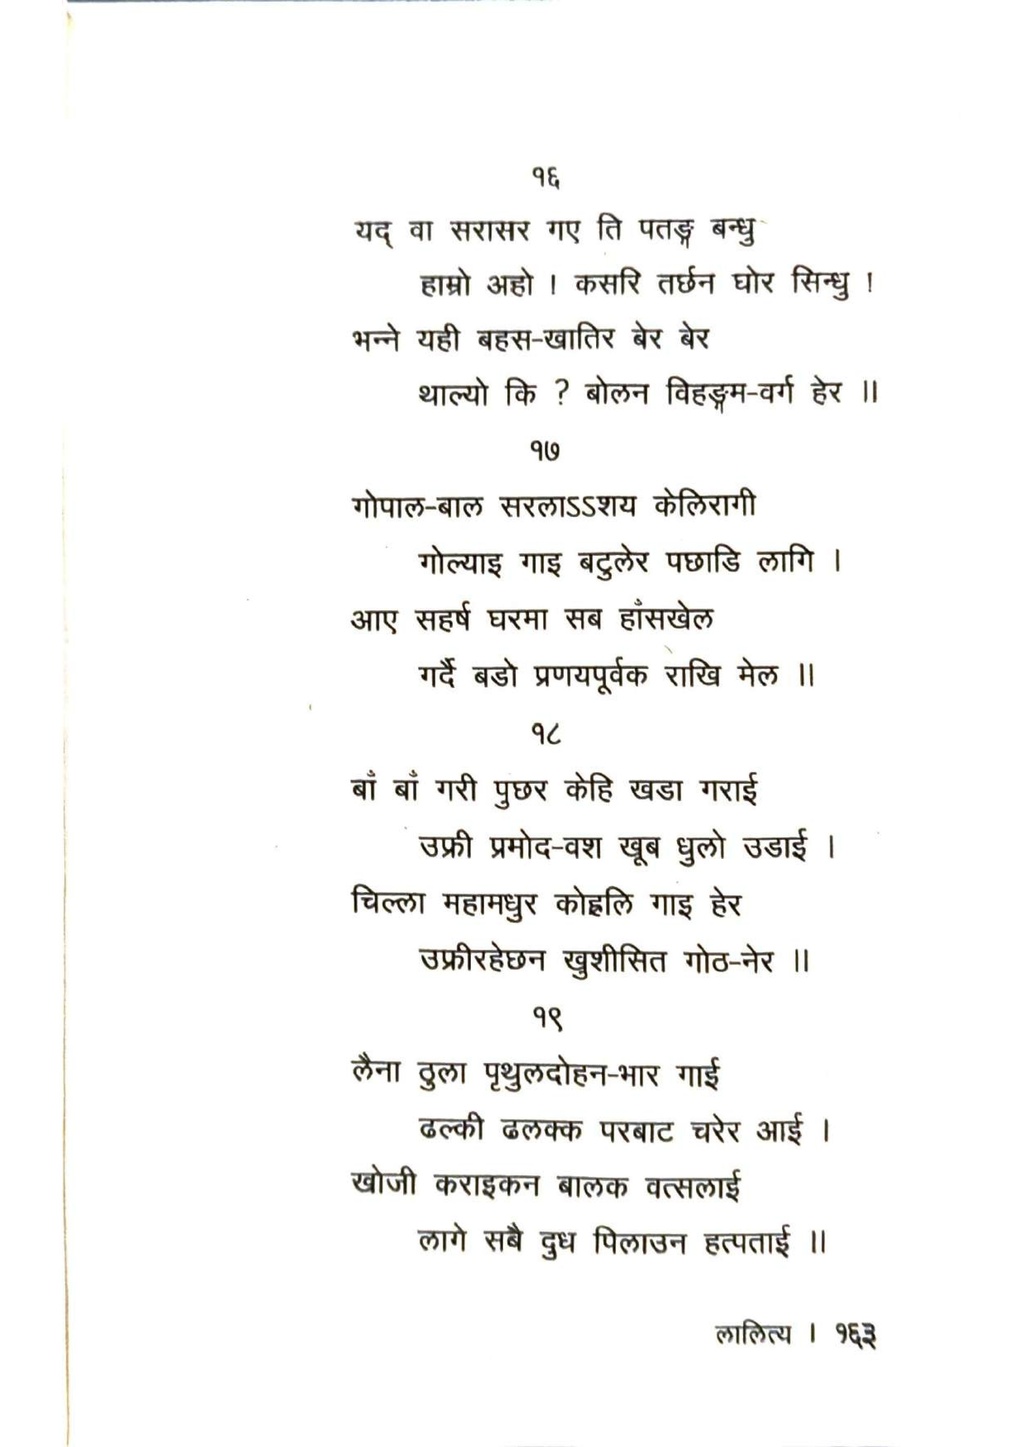 १६
यद् वा सरासर गए ति पतङ्ग बन्धु
हाम्रो अहो ! कसरि तर्छन घोर सिन्धु !
भन्ने यही बहस-खातिर बेर बेर
थाल्यो कि ? बोलन विहङ्गम-वर्ग हेर ॥
१७
गोपाल-बाल सरलाऽऽशय केलिरागी
गोल्याइ गाइ बटुलेर पछाडि लागि ।
आए सहर्ष घरमा सब हाँसखेल
गर्दै बडो प्रणयपूर्वक राखि मेल ॥
१८
बाँ बाँ गरी पुछर केहि खडा गराई
उफ्री प्रमोद-वश खूब धुलो उडाई ।
चिल्ला महामधुर कोह्रलि गाइ हेर
उफ्रीरहेछन खुशीसित गोठ-नेर ॥
१९
लैना ठुला पृथुलदोहन-भार गाई
ढल्की ढलक्क परबाट चरेर आई ।
खोजी कराइकन बालक वत्सलाई
लागे सबै दुध पिलाउन हत्पताई ॥
लालित्य । १६३